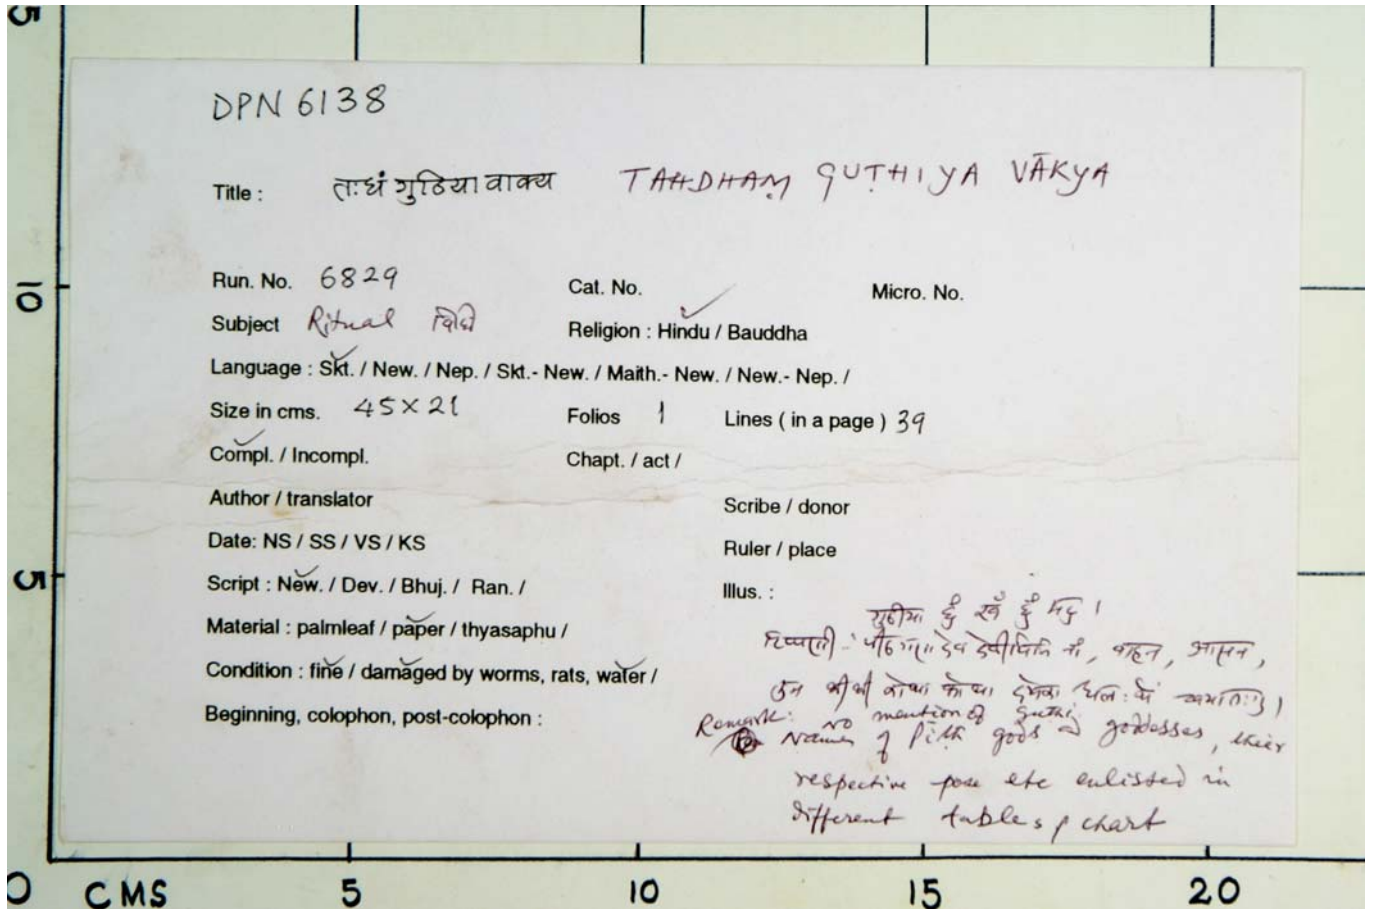 DPN 6138
Title : तःधं गुठिया वाक्य TAHDHAṂ GUṬHIYA VĀKYA
Run. No. 6829 Cat. No. Micro. No.
Subject Ritual विधि Religion : Hindu / Bauddha
Language : Skt. / New. / Nep. / Skt.- New. / Maith.- New. / New.- Nep. /
Size in cms. 45×21 Folios 1 Lines ( in a page ) 39
Compl. / Incompl. Chapt. / act /
Author / translator Scribe / donor
Date: NS / SS / VS / KS Ruler / place
Script : New. / Dev. / Bhuj. / Ran. / Illus. :
Material : palmleaf / paper / thyasaphu /
Condition : fine / damaged by worms, rats, water /
Beginning, colophon, post-colophon :
टिप्पणी : देव वाहन, आसन,
Remark: No mention of guthi.
Names of Pith gods & goddesses, their
respective pose etc enlisted in
different tables / chart
5
10
5
0 CMS 5 10 15 20